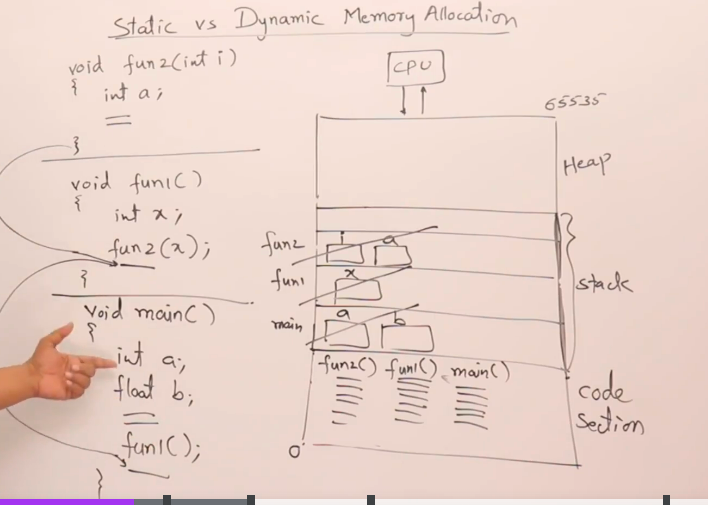 Static vs Dynamic Memory Allocation
void fun2(int i)
{
int a;
}
void fun1()
{
int x;
fun2(x);
}
void main()
{
int a;
float b;
fun1();
}
CPU
65535
Heap
fun2
i
a
fun1
x
main
a
b
stack
fun2() fun1() main()
code
Section
0